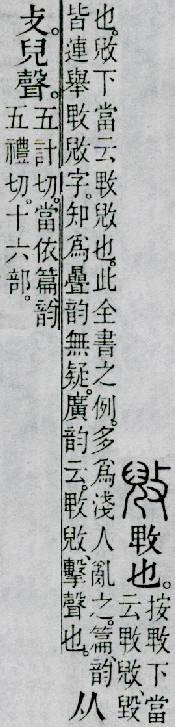 也。
按下當
云、毀
也。下當云也。此全書之例。多爲淺人亂之。篇、韵
皆連舉字。知爲疊韵無疑。廣韵云。擊聲也。
从
攴。兒聲。
五計切。當依篇韵
五禮切。十六部。